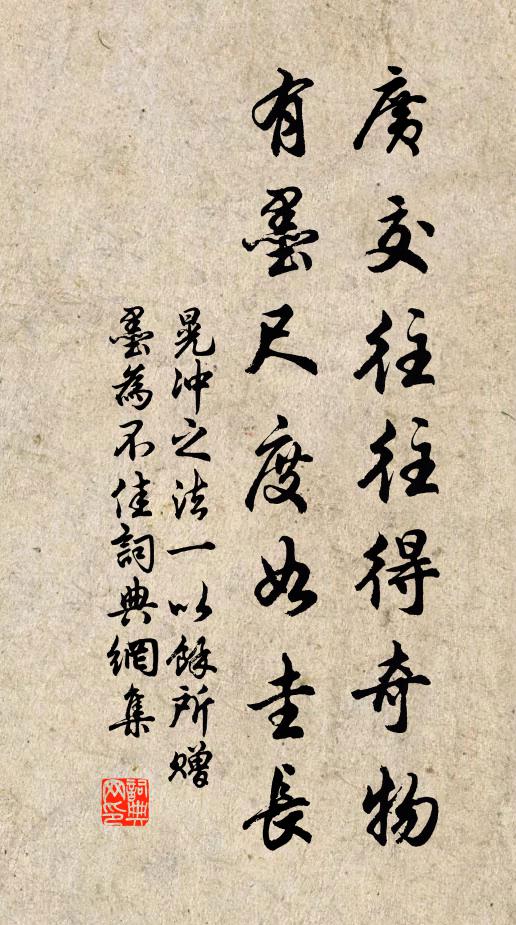 廣交往往得奇物
有墨尺度如圭長
晁沖之法一以餘所贈
墨為不佳詞典網集
詞典
网印